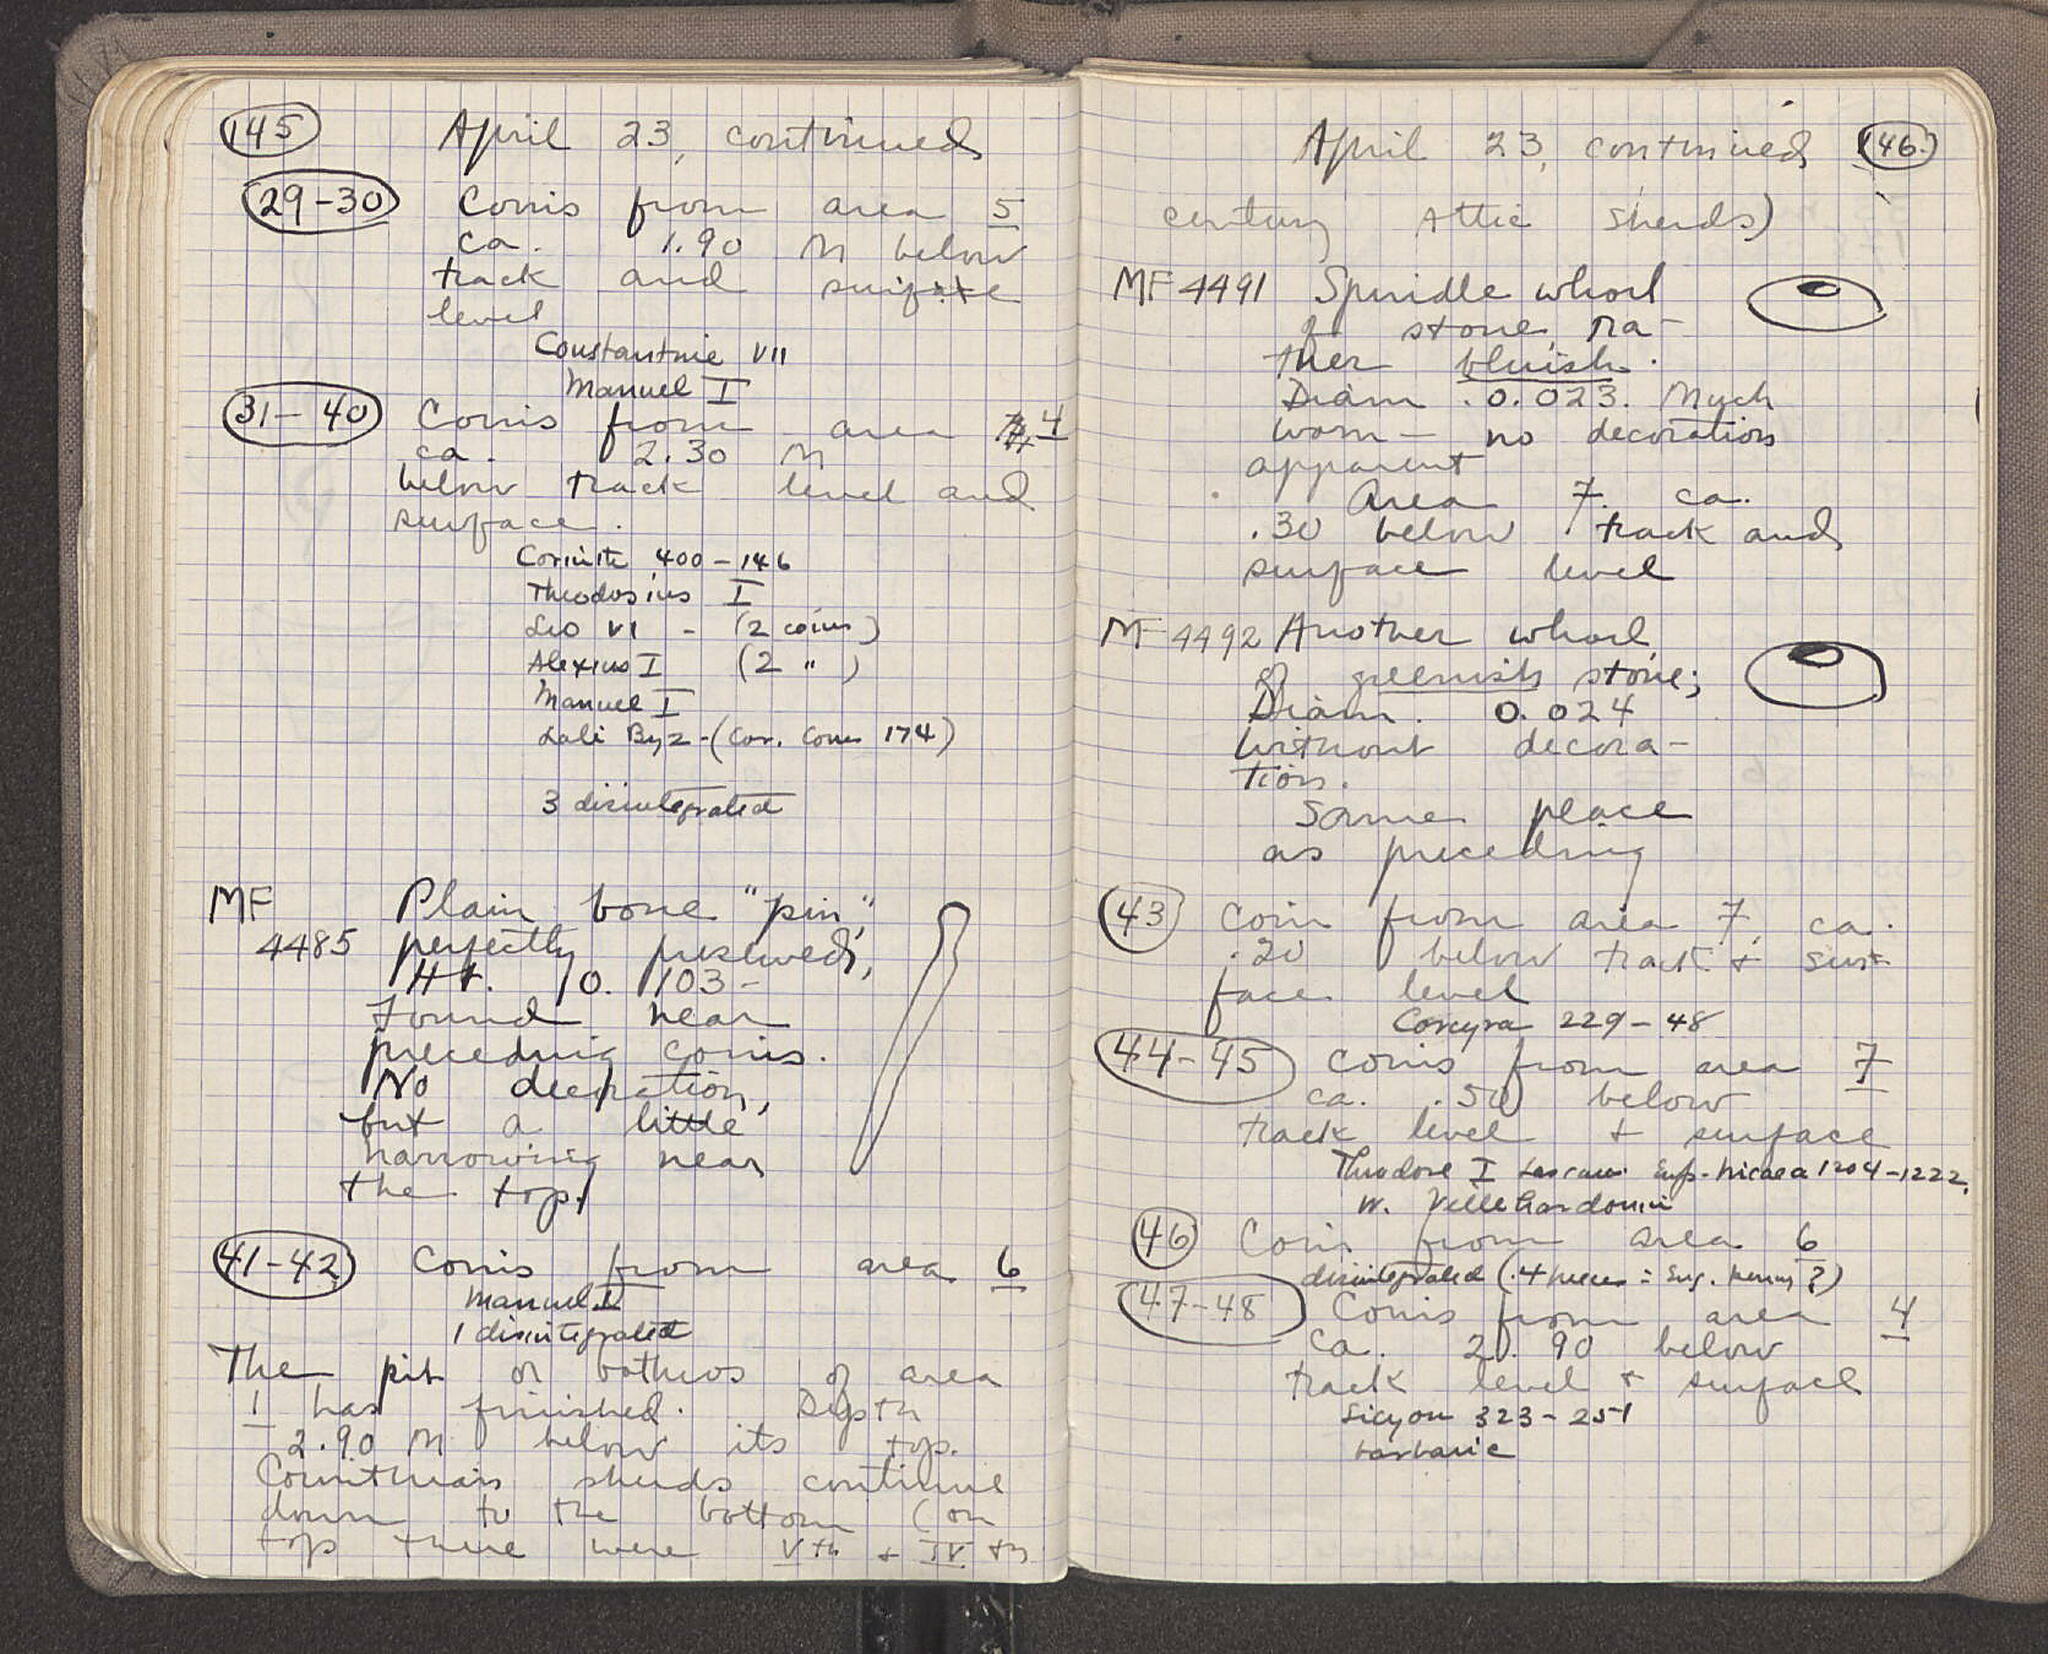 145 April 23, continued
29-30 Coins from area 5
ca. 1.90 M below
track and surface
level
Constantine VII
Manuel I
31-40 Coins from area 4
ca. 2.30 M
below track level and
surface.
Corinth 400-146
Theodosius I
Leo VI - (2 coins)
Alexius I (2 ")
Manuel I
Late Byz - (Cor. Coins 174)
3 disintegrated
MF Plain bone "pin",
4485 perfectly preserved,
Ht. 0.103-
Found near
preceding coins.
No decoration,
but a little
narrowing near
the top.
41-42 Coins from area 6
Manuel I
1 disintegrated
The pit or bothros of area
1 has finished. Depth
2.90 M below its top.
Corinthian sherds continue
down to the bottom (on
top there were Vth + IV th
April 23, continued 146.
century Attic sherds)
MF 4491 Spindle whorl
of stone, ra-
ther bluish.
Diam. 0.023. Much
worn - no decoration
apparent
Area 7. ca.
.30 below track and
surface level
MF 4492 Another whorl
of greenish stone;
Diam. 0.024
Without decora-
tion.
Same place
as preceding
43 Coin from area 7, ca.
.20 below track + sur-
face level
Corcyra 229-48
44-45 Coins from area 7
ca. .50 below
track level + surface
Theodore I Emp. Nicaea 1204-1222.
W. Villehardouin
46 Coin from area 6
disintegrated (.4 pieces = ?)
47-48 Coins from area 4
ca. 2.90 below
track level + surface
Sicyon 323-251
barbaric